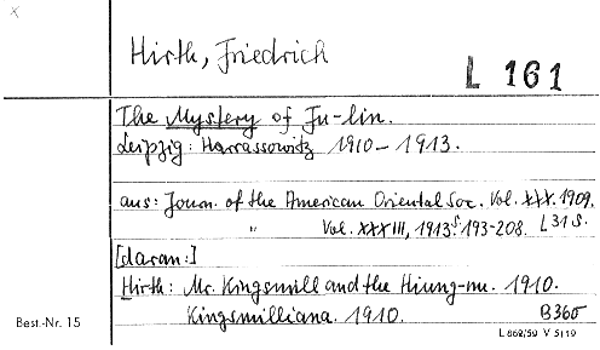 x
Hirth, Friedrich
L 161
The Mystery of Fu-lin.
Leipzig: Harrassowitz 1910-1913.
aus: Journ. of the American Oriental Soc. Vol. XXX. 1909.
" Vol. XXXIII, 1913. S. 193-208. L 31 S.
[daran:]
Hirth: Mr. Kingsmill and the Hiung-nu. 1910.
Kingsmilliana. 1910. B360
Best.-Nr. 15
L 862/59 V 5119